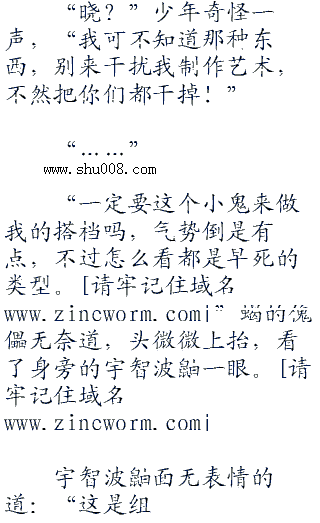 “晓？”少年奇怪一
声，“我可不知道那种东
西，别来干扰我制作艺术，
不然把你们都干掉！”
“……”
www.shu008.com
“一定要这个小鬼来做
我的搭裆吗，气势倒是有
点，不过怎么看都是早死的
类型。[请牢记住域名
www.zincworm.com|”蝎的傀
儡无奈道，头微微上抬，看
了身旁的宇智波鼬一眼。[请
牢记住域名
www.zincworm.com|
宇智波鼬面无表情的
道：“这是组